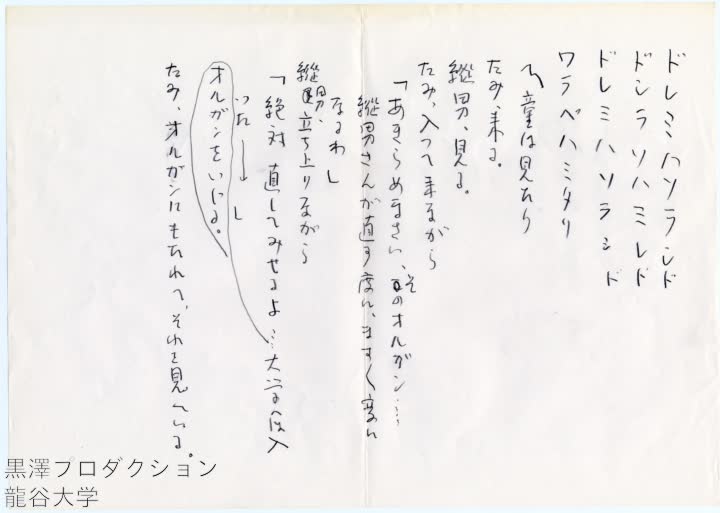 ドレミハソラシド
ドシラソハミレド
ドレミハソラシド
ワラベハミタリ
〽童は見たり
たみ、来る。
縦男、見る。
たみ、入って来ながら
「あきらめなさい、そのオルガン…
縦男さんが直す度に、ますく変に
なるわ」
縦男、立ち上りながら
「絶対 直してみせるよ…大学へ入
った 」
オルガンをいじる。
たみ、オルガンにもたれて、それを見ている。
黒澤プロダクション
龍谷大学